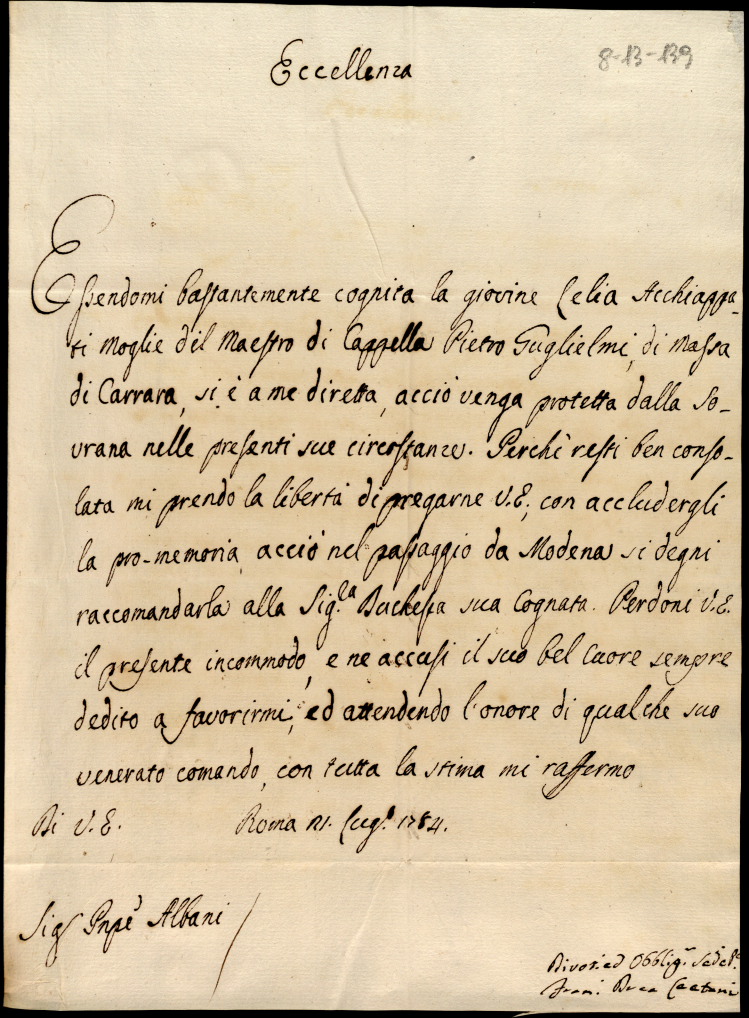 8-13-139
Eccellenza
Essendomi bastantemente cognita la giovine Celia Acchiappa-
ti Moglie del Maestro di Cappella Pietro Guglielmi, di Massa
di Carrara, si è a me diretta, acciò venga protetta dalla So-
vrana nelle presenti sue circostanze. Perchè resti ben conso-
lata mi prendo la libertà di pregarne V.E., con accludergli
la pro-memoria, acciò nel passaggio da Modena si degni
raccomandarla alla Sig.ra Duchessa sua Cognata. Perdoni V.E.
il presente incommodo, e ne accusi il suo bel Cuore sempre
dedito a favorirmi, ed attendendo l'onore di qualche suo
venerato comando, con tutta la stima mi raffermo
Di V.E. Roma 21. Lug.o 1784.
Sig.r Pnpe Albani
Divot. ed Obblig.
Duca Caetani